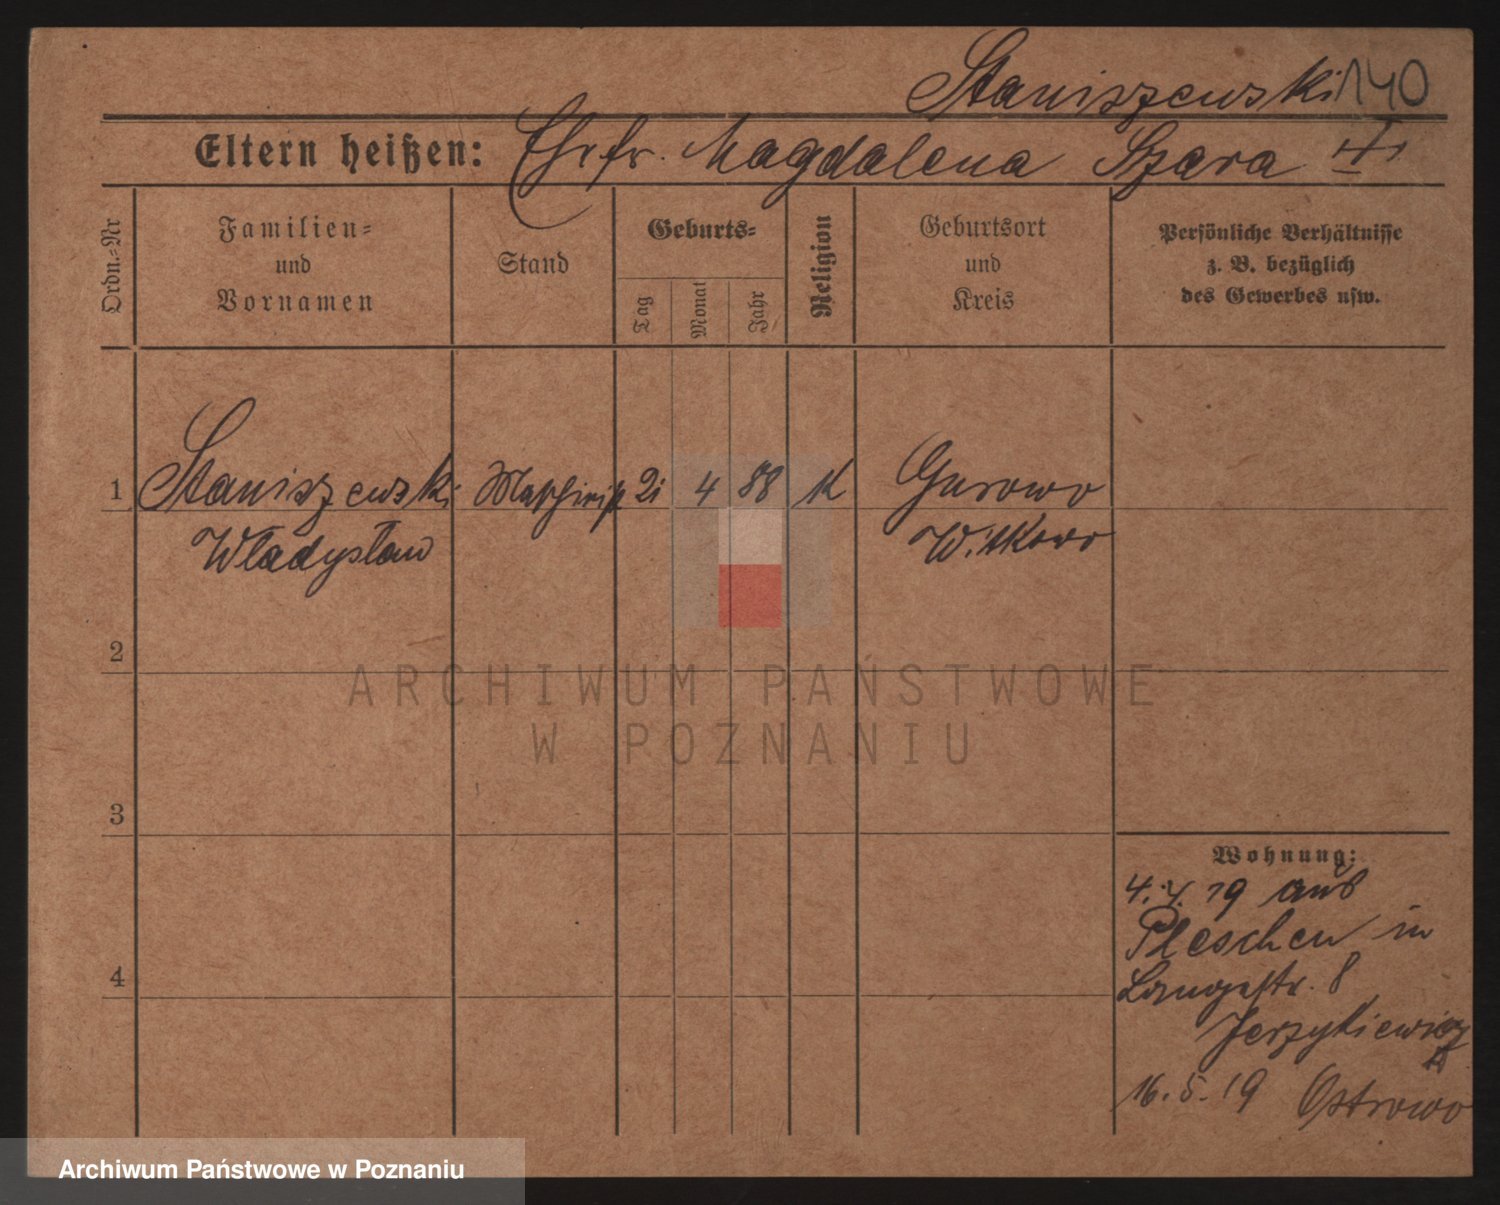 Staniszewski 140
Eltern heißen: Ehefr. Magdalena Szara
Ordn.-Nr
Familien-
und
Vornamen
Stand
Geburts-
Tag
Monat
Jahr
Religion
Geburtsort
und
Kreis
Persönliche Verhältnisse
z. B. bezüglich
des Gewerbes usw.
1 Staniszewski 21 4 88 K Gurowo
Władysław Witkowo
2
3
4
Wohnung:
4. 4. 19 aus
Pleschen in
Langestr. 8
Jerzykiewicz
16. 5. 19 Ostrowo
ARCHIWUM PAŃSTWOWE
W POZNANIU
Archiwum Państwowe w Poznaniu